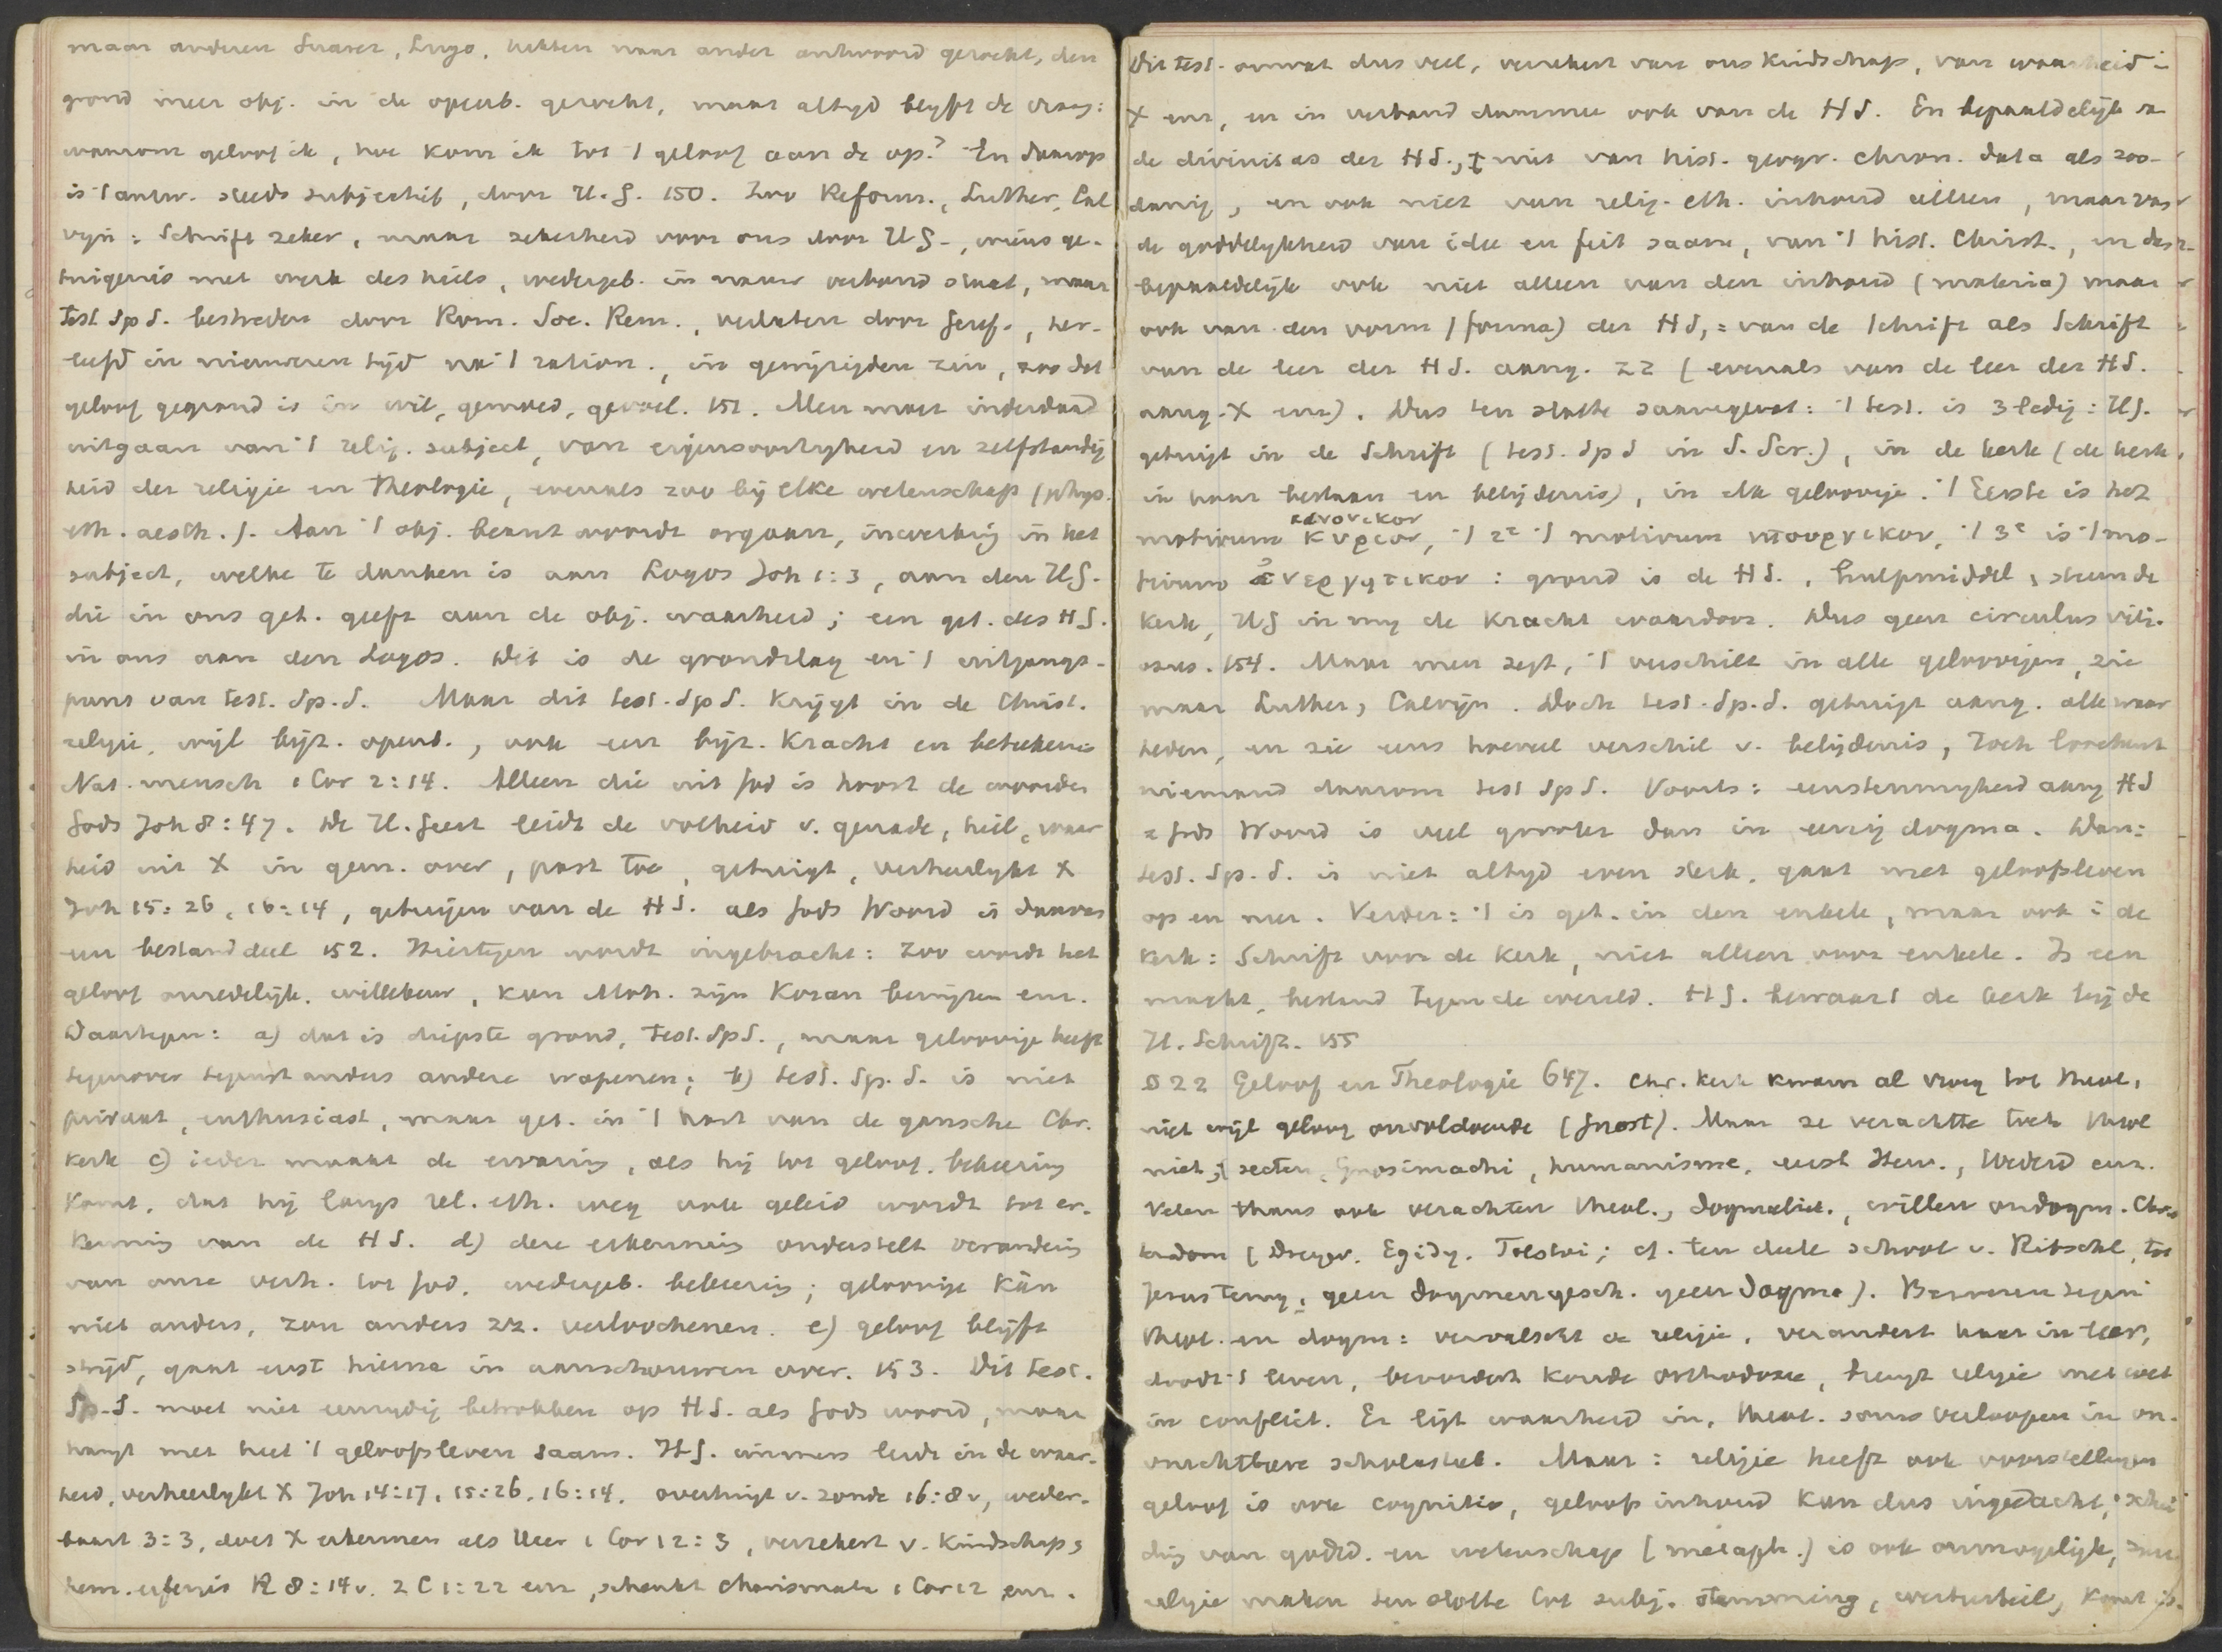 maar anderen Suarez, Lugo, hebben naar ander antwoord gezocht, den
grond meer obj. in de openb. gezocht, maar altyd blyft de vraag:
waarom geloof ik, hoe kom ik tot 't geloof aan de op.? En daarop
is 't antw. steeds subjectief, door H.G. 150. Zoo Reform., Luther, Cal
vyn: Schrift zeker, maar zekerheid voor ons door HG-, wiens ge-
tuigenis met werk des heils, wedergeb. in nauw verband staat, maar
Test Sp S. bestreden door Rom. Soc. Rem., verlaten door Geref., her-
leefd in nieuweren tyd na 't ration., in gewyzigden zin, zoo dat
geloof gegrond is in wil, gemoed, gevoel. 151. Men moet inderdaad
uitgaan van 't relig. subject, van eigensoortigheid en zelfstandig
heid der religie en theologie, evenals zoo bij elke wetenschap (phys.
eth. aesth.). Aan 't obj. beant woordt orgaan, inwerking in het
subject, welke te danken is aan Logos Joh 1:3, aan den HG.
die in ons get. geeft aan de obj. waarheid; een get. des HG.
in ons aan den Logos. Dit is de grondslag en 't uitgangs-
punt van test. Sp. S. Maar dit test. Sp S. krygt in de Christ.
religie, wyl byz. openb., ook een byz. kracht en beteekenis
Nat. mensch 1 Cor 2:14. Alleen die uit God is hoort de woorden
Gods Joh 8:47. De H. Geest leidt de volheid v. genade, heil, waar
heid uit X in gem. over, past toe, getuigt, verheerlykt X
Joh 15:26, 16:14, getuigen van de HS. als Gods Woord is daarvan
een bestanddeel 152. Hiertegen wordt ingebracht: Zoo wordt het
geloof onredelyk. willekeur, kan Moh. zyn Koran bewyzen enz.
Daartegen: a) dat is diepste grond, test. Sp S., maar geloovige heeft
tegenover tegenstanders andere wapenen; b) test. Sp. S. is niet
privaat, enthusiast, maar get. in 't hart van de gansche Chr.
kerk c) ieder maakt de ervaring, als hij tot geloof, bekeering
komt, dat hij langs rel. eth. weg ook geleid wordt tot er-
kenning van de HS. d) deze erkenning onderstelt verandering
van onze verh. tot God, wedergeb. bekeering; geloovige kàn
niet anders, zou anders zz. verloochenen. e) geloof blyft
stryd, gaat eerst hierna in aanschouwen over. 153. Dit test.
Sp. S. moet niet eenzydig betrokken op HS. als Gods woord, maar
hangt met heel 't geloofsleven saam. HG. immers leidt in de waar-
heid, verheerlykt X Joh 14:17, 15:26, 16:14. overtuigt v. zonde 16:8v, weder-
baart 3:3, doet X erkennen als Heer 1 Cor 12:3, verzekert v. kindschap,
hem. erfenis R 8:14v. 2 C 1:22 enz, schenkt charismata 1 Cor 12 enz.
Dit test. omvat dus veel, verzekert van ons kindschap, van waarheid i
X enz, en in verband daarmee ook van de HS. En bepaaldelyk va
de divinitas der HS., niet van hist. geogr. chron. data als zoo-
danig, en ook niet van relig. eth. inhoud alleen, maar van
de goddelykheid van idee en feit saam, van 't hist. Christ., en dus
bepaaldelyk ook niet alleen van den inhoud (materia) maar
ook van den vorm (forma) der HS, = van de Schrift als Schrift
van de leer der HS. aang. zz (evenals van de leer der HS.
aang. X enz). Dus ten slotte saamgevat: 't test. is 3ledig: HG.
getuigt in de Schrift (test. Sp S in S. Scr.), in de kerk (de kerk
in haar bestaan en belijdenis), in elk geloovige. 't Eerste is het
motivum κυριον, 't 2e 't motivum υπουργικον, 't 3e is 't mo-
tivum ἐνεργητικον: grond is de HS., hulpmiddel, steun de
kerk, HG in my de kracht waardoor. Dus geen circulus viti-
osus. 154. Maar men zegt, 't verschilt in alle geloovigen, zie
maar Luther, Calvyn. Doch test. Sp. S. getuigt aang. alle waar
heden, en zie eens hoeveel verschil v. belijdenis, toch loochent
niemand daarom test Sp S. Voorts: eenstemmigheid aang HS
= Gods Woord is veel grooter dan in eenig dogma. Dan:
test. Sp. S. is niet altyd even sterk, gaat met geloofsleven
op en neer. Verder: 't is get. in den enkele, maar ook i de
kerk: Schrift voor de kerk, niet alleen voor enkele. Is een
macht, bestand tegen de wereld. HG. bewaart de kerk bij de
H. Schrift. 155
§ 22 Geloof en Theologie 647. Chr. kerk kwam al vroeg tot theol.
niet wyl geloof onvoldoende (Gnost). Maar ze verachtte toch theol
niet; secten, Gnosimachi, humanisme, eerst Herv., Wederd enz.
Velen thans ook verachten theol., dogmatiek., willen ondogm. Chr.
tendom (Dreyer. Egidy. Tolstoi; cf. ten deele school v. Ritschl, tot
Jesus terug, geen dogmengesch. geen dogma). Bezwaren tegen
theol. en dogm: vervalscht de religie, verandert haar in leer,
doodt 't leven, bevordert koude orthodoxie, brengt religie met wet
in conflict. Er ligt waarheid in, theol. soms verloopen in on-
vruchtbare scholastiek. Maar: religie heeft ook voorstellingen
geloof is ook cognitio, geloofsinhoud kan dus ingedacht; schei
ding van godsd. en wetenschap (metaph.) is ook onmogelyk, zou
religie maken ten slotte tot subj. stemming, werturteil, komt in